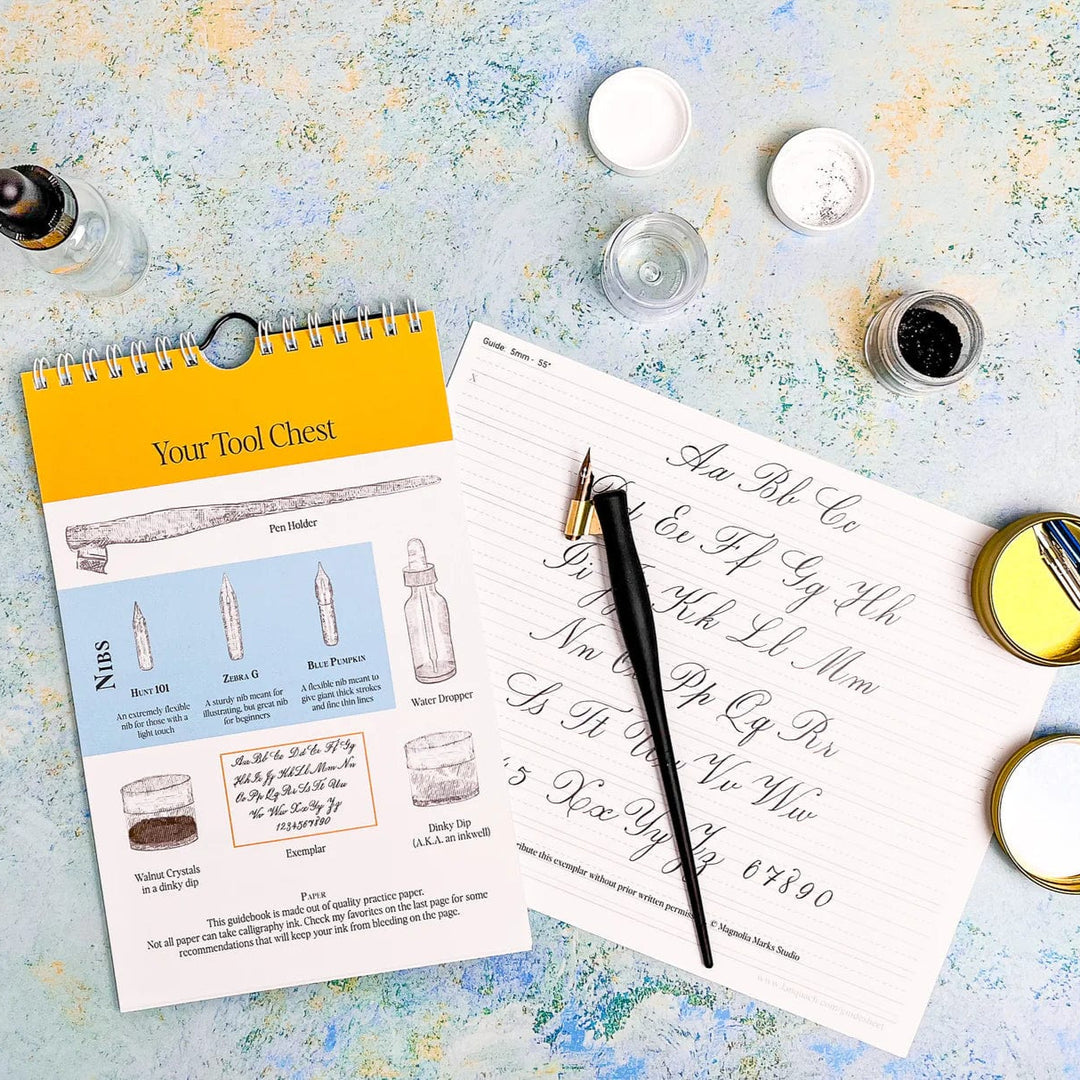 Your Tool Chest
Pen Holder
NIBS
HUNT 101
An extremely flexible
nib for those with a
light touch
ZEBRA G
A sturdy nib meant for
illustrating, but great nib
for beginners
BLUE PUMPKIN
A flexible nib meant to
give giant thick strokes
and fine thin lines
Water Dropper
Walnut Crystals
in a dinky dip
Aa Bb Cc Dd Ee Ff Gg
Hh Ii Jj Kk Ll Mm Nn
Oo Pp Qq Rr Ss Tt Uu
Vv Ww Xx Yy Zz
1234567890
Exemplar
Dinky Dip
(A.K.A. an inkwell)
PAPER
This guidebook is made out of quality practice paper.
Not all paper can take calligraphy ink. Check my favorites on the last page for some
recommendations that will keep your ink from bleeding on the page.
Guide: 5mm - 55°
X
Aa Bb Cc
Ee Ff Gg Hh
Ii Kk Ll Mm
Nn Pp Qq Rr
Ss Tt Vv Ww
5 Xx Yy Zz 67890
this exemplar without prior written © Magnolia Marks Studio